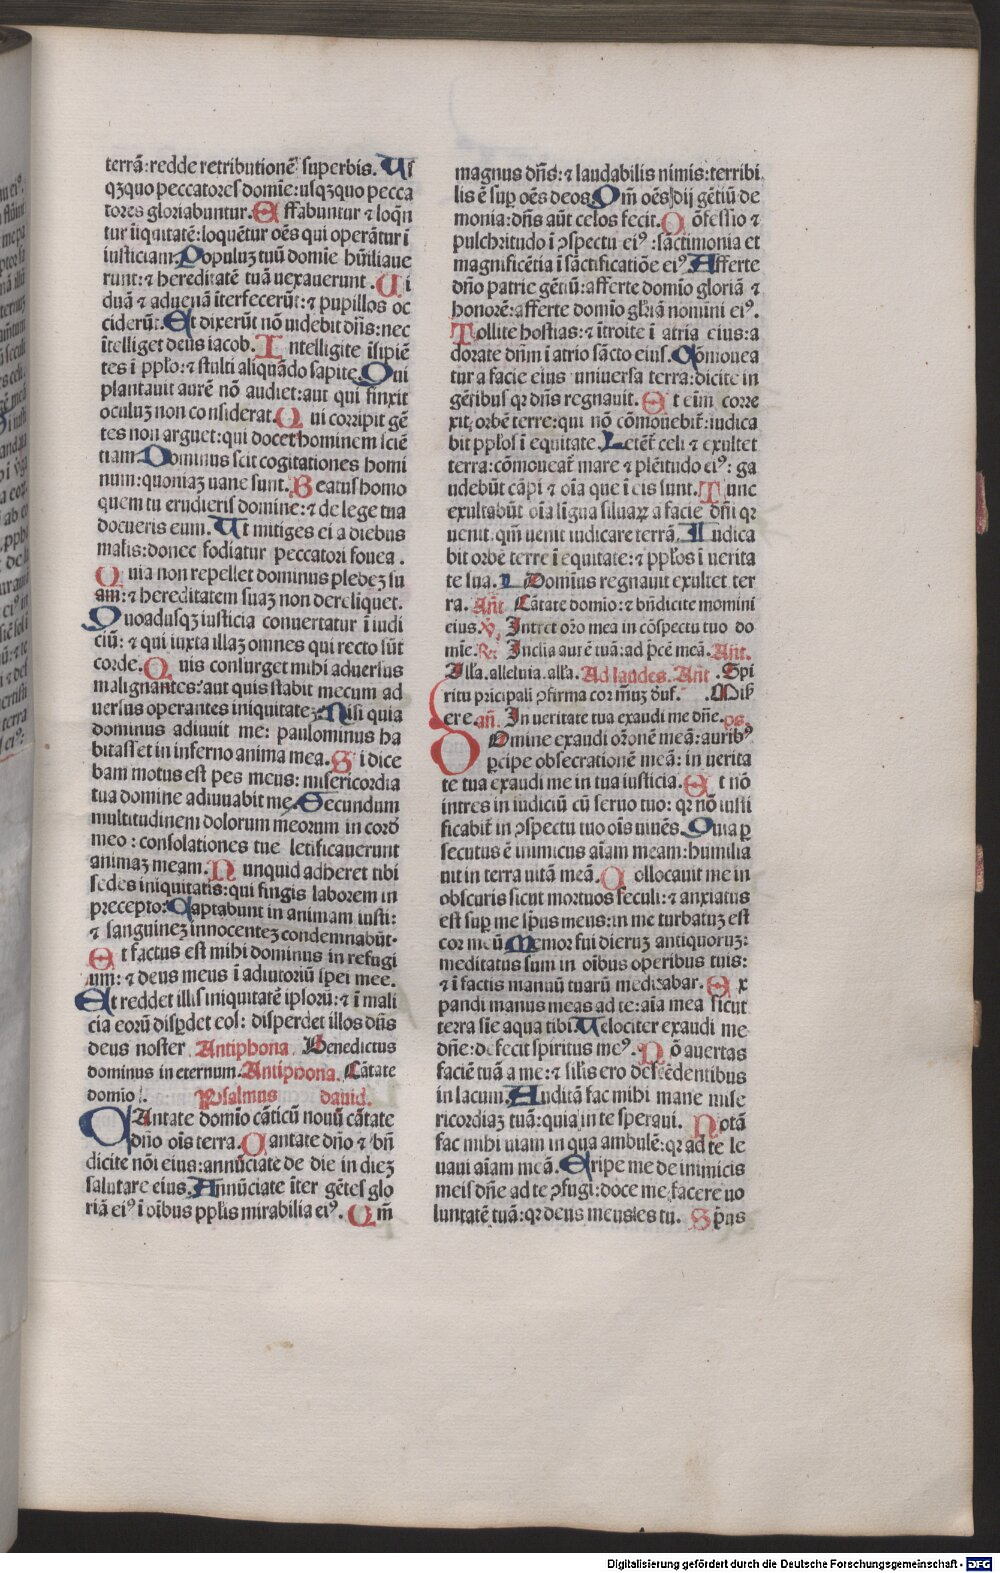 terrā: redde retributionē superbis. Us
qꝫquo peccatores domīe: usqꝫquo pecca
tores gloriabuntur. Effabuntur ⁊ loqñ
tur īiquitatē: loquētur oēs qui operātur ī
iusticiam Populuꝫ tuū domīe hūiliaue
runt: ⁊ hereditatē tuā uexauerunt. Ui
duā ⁊ aduenā īterfecerūt: ⁊ pupillos oc
ciderūt. Et dixerūt nō uidebit dn̄s: nec
ītelliget deus iacob. Intelligite īsipiē
tes ī pplo: ⁊ stulti aliquādo sapite. Qui
plantauit aurē nō audiet: aut qui finxit
oculuꝫ non considerat. Qui corripit gē
tes non arguet: qui docet hominem sciē
tiam Dominus scit cogitationes homi
num: quoniaꝫ uane sunt. Beatus homo
quem tu erudieris domine: ⁊ de lege tua
docueris eum. Ut mitiges ei a diebus
malis: donec fodiatur peccatori fouea.
Quia non repellet dominus plebeꝫ su
am: ⁊ hereditatem suaꝫ non derelinquet.
Quoadusqꝫ iusticia conuertatur ī iudi
ciū: ⁊ qui iuxta illaꝫ omnes qui recto sūt
corde. Quis consurget mihi aduersus
malignantes: aut quis stabit mecum ad
uersus operantes iniquitateꝫ Nisi quia
dominus adiuuit me: paulominus ha
bitasset in inferno anima mea. Si dice
bam motus est pes meus: misericordia
tua domine adiuuabit me. Secundum
multitudinem dolorum meorum in cord
meo: consolationes tue letificauerunt
animaꝫ meam. Nunquid adheret tibi
sedes iniquitatis: qui fingis laborem in
precepto: Captabunt in animam iusti:
⁊ sanguineꝫ innocenteꝫ condemnabūt.
Et factus est mihi dominus in refugi
um: ⁊ deus meus ī adiutoriū spei mee.
Et reddet illis iniquitatē ipsorū: ⁊ ī mali
cia eorū disp̄det eos: disperdet illos dn̄s
deus noster. Antiphona. Benedictus
dominus in eternum. Antiphona. Cātate
domīo. Psalmus dauid.
CAntate domīo cāticū nouū cātate
dn̄o oīs terra. Cantate dn̄o ⁊ bn̄
dicite nōi eius: annūciate de die in dieꝫ
salutare eius. Annūciate īter gētes glo
riā eiꝰ ī oībus pplis mirabilia eiꝰ. Qm̄
magnus dn̄s: ⁊ laudabilis nimis: terribi
lis ē sup̄ oēs deos Qm̄ oēs dij gētiū de
monia: dn̄s aūt celos fecit. Cōfessio ⁊
pulchritudo ī ꝯspectu eiꝰ: sāctimonia et
magnificētia ī sāctificatiōe eiꝰ. Afferte
dn̄o patrie gētiū: afferte domīo gloriā ⁊
honorē: afferte domīo glīā nomini eiꝰ.
Tollite hostias: ⁊ ītroite ī atria eius: a
dorate dn̄m ī atrio sācto eius. Cōmouea
tur a facie eius uniuersa terra: dicite in
gētibus qꝛ dn̄s regnauit. Et eīm corre
xit orbē terre: qui nō cōmouebit̄: iudica
bit pplos ī equitate. Letēt̄ celi ⁊ exultet
terra: cōmoueat̄ mare ⁊ plētudo eiꝰ: ga
udebūt cāpi ⁊ oīa que ī eis sunt. Tunc
exultabūt oīa līgna siluaꝝ a facie dn̄i qꝛ
uenit. qm̄ uenit iudicare terrā. Iudica
bit orbē terre ī equitate: ⁊ pplos ī uerita
te sua. ℣ Domīus regnauit exultet ter
ra. An̄t Cātate domīo: ⁊ bn̄dicite momini
eius. ℣. Intret oro mea in cōspectu tuo do
mīe. R̄. Inclīa aurē tuā: ad p̄ce meā. Ant.
Illa. alleluia. alla. Ad laudes. Ant̄. Spi
ritu prīcipali ꝯfirma cor meuꝫ dus. Mis̄
ere. an̄. In ueritate tua exaudi me dn̄e. ps.
DOmine exaudi or̄onē meā: auribꝰ
p̄cipe obsecrationē meā: in uerita
te tua exaudi me in tua iusticia. Et nō
intres in iudiciū cū seruo tuo: qꝛ nō iusti
ficabit̄ in ꝯspectu tuo oīs uiuēs. Quia ꝑ
secutus ē inimicus aīam meam: humilia
uit in terra uitā meā. Collocauit me in
obscuris sicut mortuos seculi: ⁊ anxiatus
est sup̄ me sp̄us meus: in me turbatuꝫ est
cor meū Memor fui dieruꝫ antiquoruꝫ:
meditatus sum in oībus operibus tuis:
⁊ ī factis manuū tuarū meditabar. Ex
pandi manus meas ad te: aīa mea sicut
terra sīe aqua tibi. Uelociter exaudi me
dn̄e: defecit spiritus meꝰ. Nō auertas
faciē tuā a me: ⁊ silis ero descēdentibus
in lacum. Auditā fac mihi mane mise
ricordiaꝫ tuā: quia in te speraui. Notā
fac mihi uiam in qua ambulē: qꝛ ad te le
uaui aīam meā. Eripe me de inimicis
meis dn̄e ad te ꝯfugi: doce me facere uo
luntatē tuā: qꝛ deus meus es tu. Sp̄us
Digitalisierung gefördert durch die Deutsche Forschungsgemeinschaft - DFG